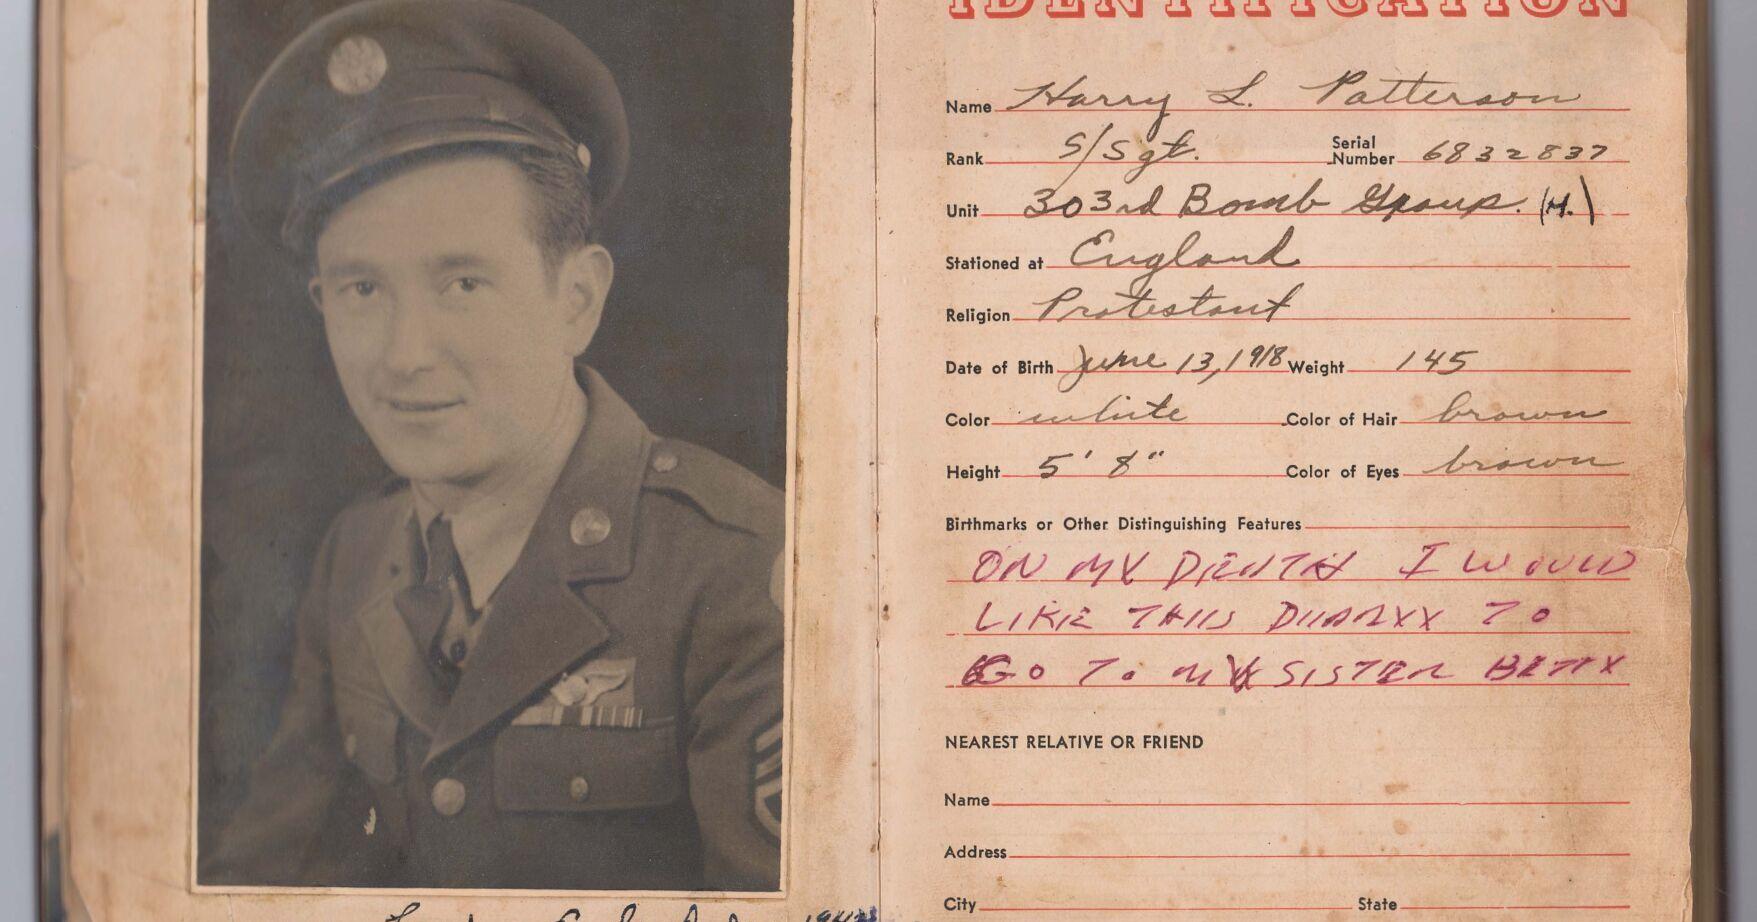 IDENTIFICATION
Name Harry L. Patterson
Rank S/Sgt. Serial Number 6832837
Unit 303rd Bomb Group. (H.)
Stationed at England
Religion Protestant
Date of Birth June 13, 1918 Weight 145
Color white Color of Hair brown
Height 5' 8" Color of Eyes brown
Birthmarks or Other Distinguishing Features
ON MY DEATH I WOULD
LIKE THIS DIARY TO
GO TO MY SISTER BETTY
NEAREST RELATIVE OR FRIEND
Name
Address
City State